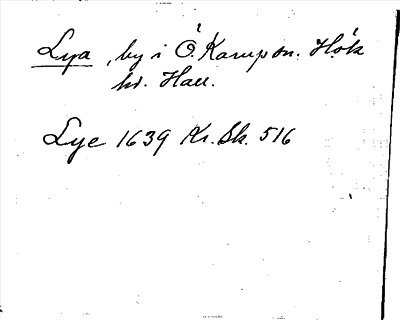 Lya, by i Ö. Karup sn. Hök
hd. Hall.
Lye 1639 Kr. Sk. 516